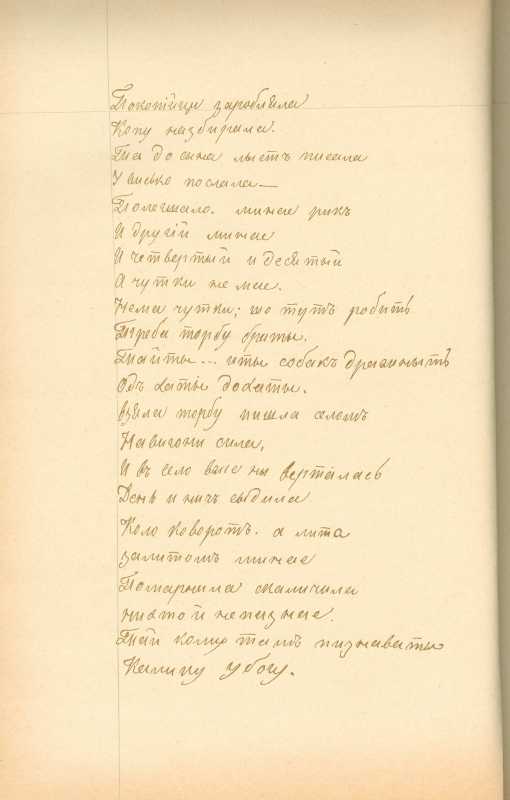 Покопійци заробляла
Копу назбирала.
Та до сына лыстъ писала
У висько послала—
Полегшало. минае рикъ
И другій минае
И четвертый и десятый
А чутки не мае.
Нема чутки; шо тутъ робить
Треба торбу браты.
Тайты... иты собакъ дратныть
Одъ хаты дохаты.
взяла торбу пишла селомъ
На вигони сила,
И въ село вже ны верталась
День и ничъ сыдила
Коло коворотъ. а лита
залитомъ минае
Помарнила скаличила
нихто й непизнае.
Тай кому тамъ пизнаваты
Калику убогу.